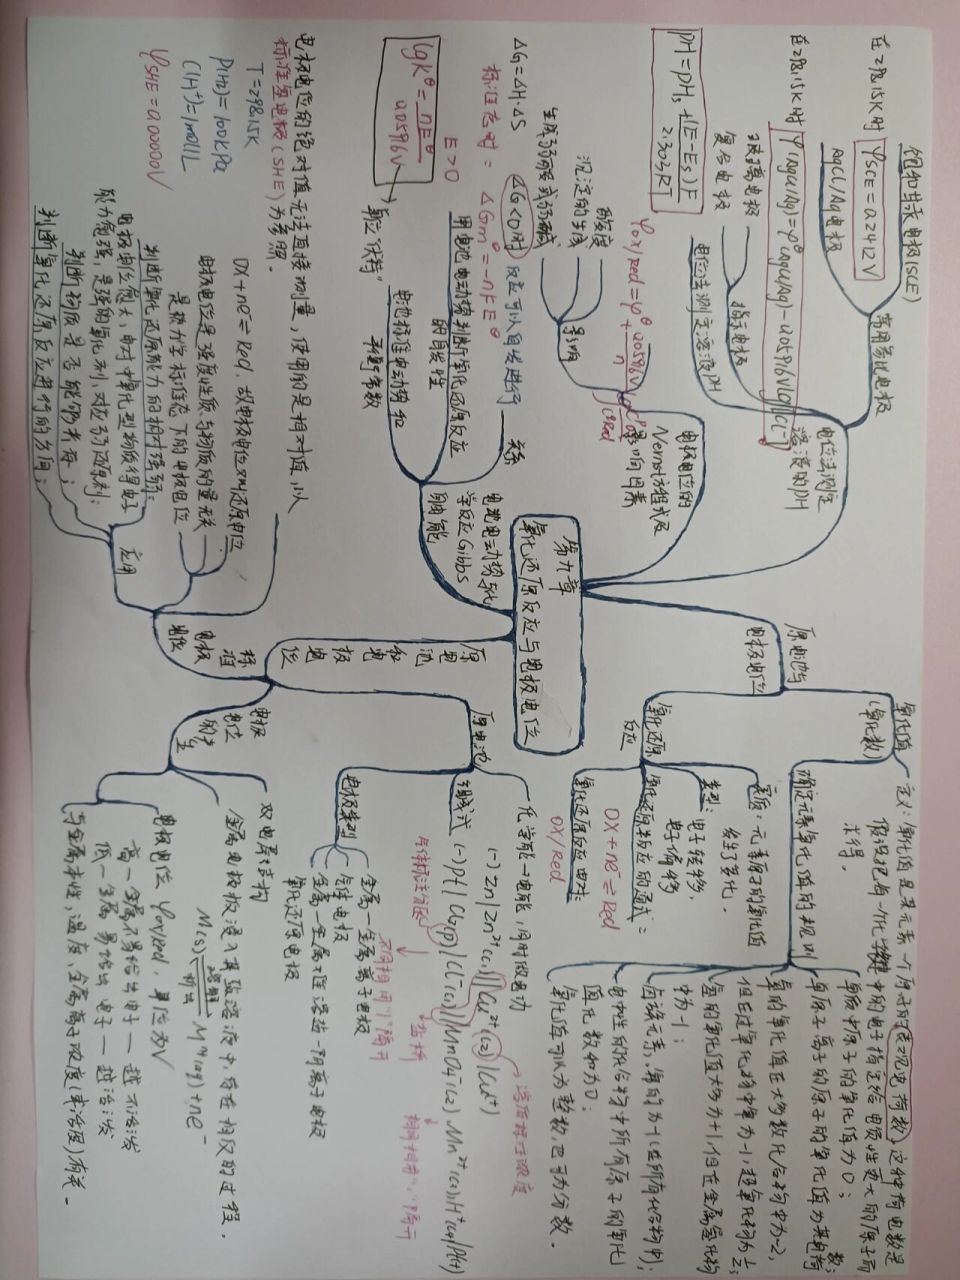 第九章
氧化还原反应与电极电位
原电池与
电极电位
氧化值
(氧化数)
定义:氧化值是某元素一个原子的表观电荷数,这种荷电数是
假设把每一化学键中的电子指定给电负性更大的原子而
求得。
确定元素氧化值的规则
单质中原子的氧化值为0;
单原子离子的原子的氧化值为其电荷数;
氧的氧化值在大多数化合物中为-2,
但在过氧化物中氧为-1,超氧化物为-½;
氢的氧化值大多为+1,但在金属氢化物
中为-1;
卤族元素,氟的为-1(在所有化合物中);
电中性的化合物中所有原子的氧化
值代数和为0;
氧化值可以为整数,也可为分数。
氧化还原
反应
实质:元素原子的氧化值
发生了变化。
类型:电子转移,
电子偏移
氧化还原半反应的通式:
OX+ne⁻⇌Red
氧化还原反应电对:
OX/Red
原电池和电极电位
原电池
化学能→电能,同时做电功
组成式
(-)Zn|Zn²⁺(c₁)||Cu²⁺(c₂)|Cu(+)
(-)Pt|Cl₂(p)|Cl⁻(c₁)||MnO₄⁻(c₂),Mn²⁺(c₃),H⁺(c₄)|Pt(+)
溶液标注浓度
气体标注分压
不同相用"|"隔开
盐桥
相同相用","隔开
电极类型
金属—金属离子电极
气体电极
金属—金属难溶盐—阴离子电极
氧化还原电极
电极
电位
的产生
双电层结构
金属电极板浸入其盐溶液中,存在相反的过程。
M(s)⇌Mⁿ⁺(aq)+ne⁻
溶解
析出
电极电位 φOx/Red,单位为V
高—金属不易给出电子—越不活泼
低—金属易给出电子—越活泼
与金属本性,温度,金属离子浓度(或活度)有关。
标准
电极
电位
电极电位的绝对值无法直接测量,使用的是相对值,以
标准氢电极(SHE)为参照。
T=298.15K
P(H₂)=100kPa
C(H⁺)=1mol/L
φSHE=0.00000V
OX+ne⁻⇌Red,故电极电位又叫还原电位
电极电位是强度性质,与物质的量无关
是热力学标准态下的电极电位
应用
判断氧化还原能力的相对强弱:
电极电位愈大,电对中氧化型物质得电子
能力愈强,是强的氧化剂,对应弱还原剂;
判断物质是否能够共存;
判断氧化还原反应进行的方向;
电池电动势与化
学反应Gibbs
自由能
关系
ΔG=ΔH·ΔS
ΔG<0时 反应可以自发进行
标准态时:ΔGmᶿ=-nFEᶿ
用电池电动势判断氧化还原反应
的自发性
E>0
电池标准电动势和
平衡常数
lgKᶿ=nEᶿ/0.05916V
电极电位的
Nernst方程式及
影响因素
φox/Red=φᶿ+0.05916V/n
影响
酸度
沉淀的生成
生成弱酸或弱碱
电位法测定
溶液的pH
常用参比电极
饱和甘汞电极(SCE)
在298.15K时 φSCE=0.2412V
AgCl/Ag电极
在298.15K时 φ(AgCl/Ag)=φᶿ(AgCl/Ag)-0.05916V
指示电极
玻璃电极
复合电极
电位法测定溶液pH
pH=pHs+(E-Es)F/2.303RT